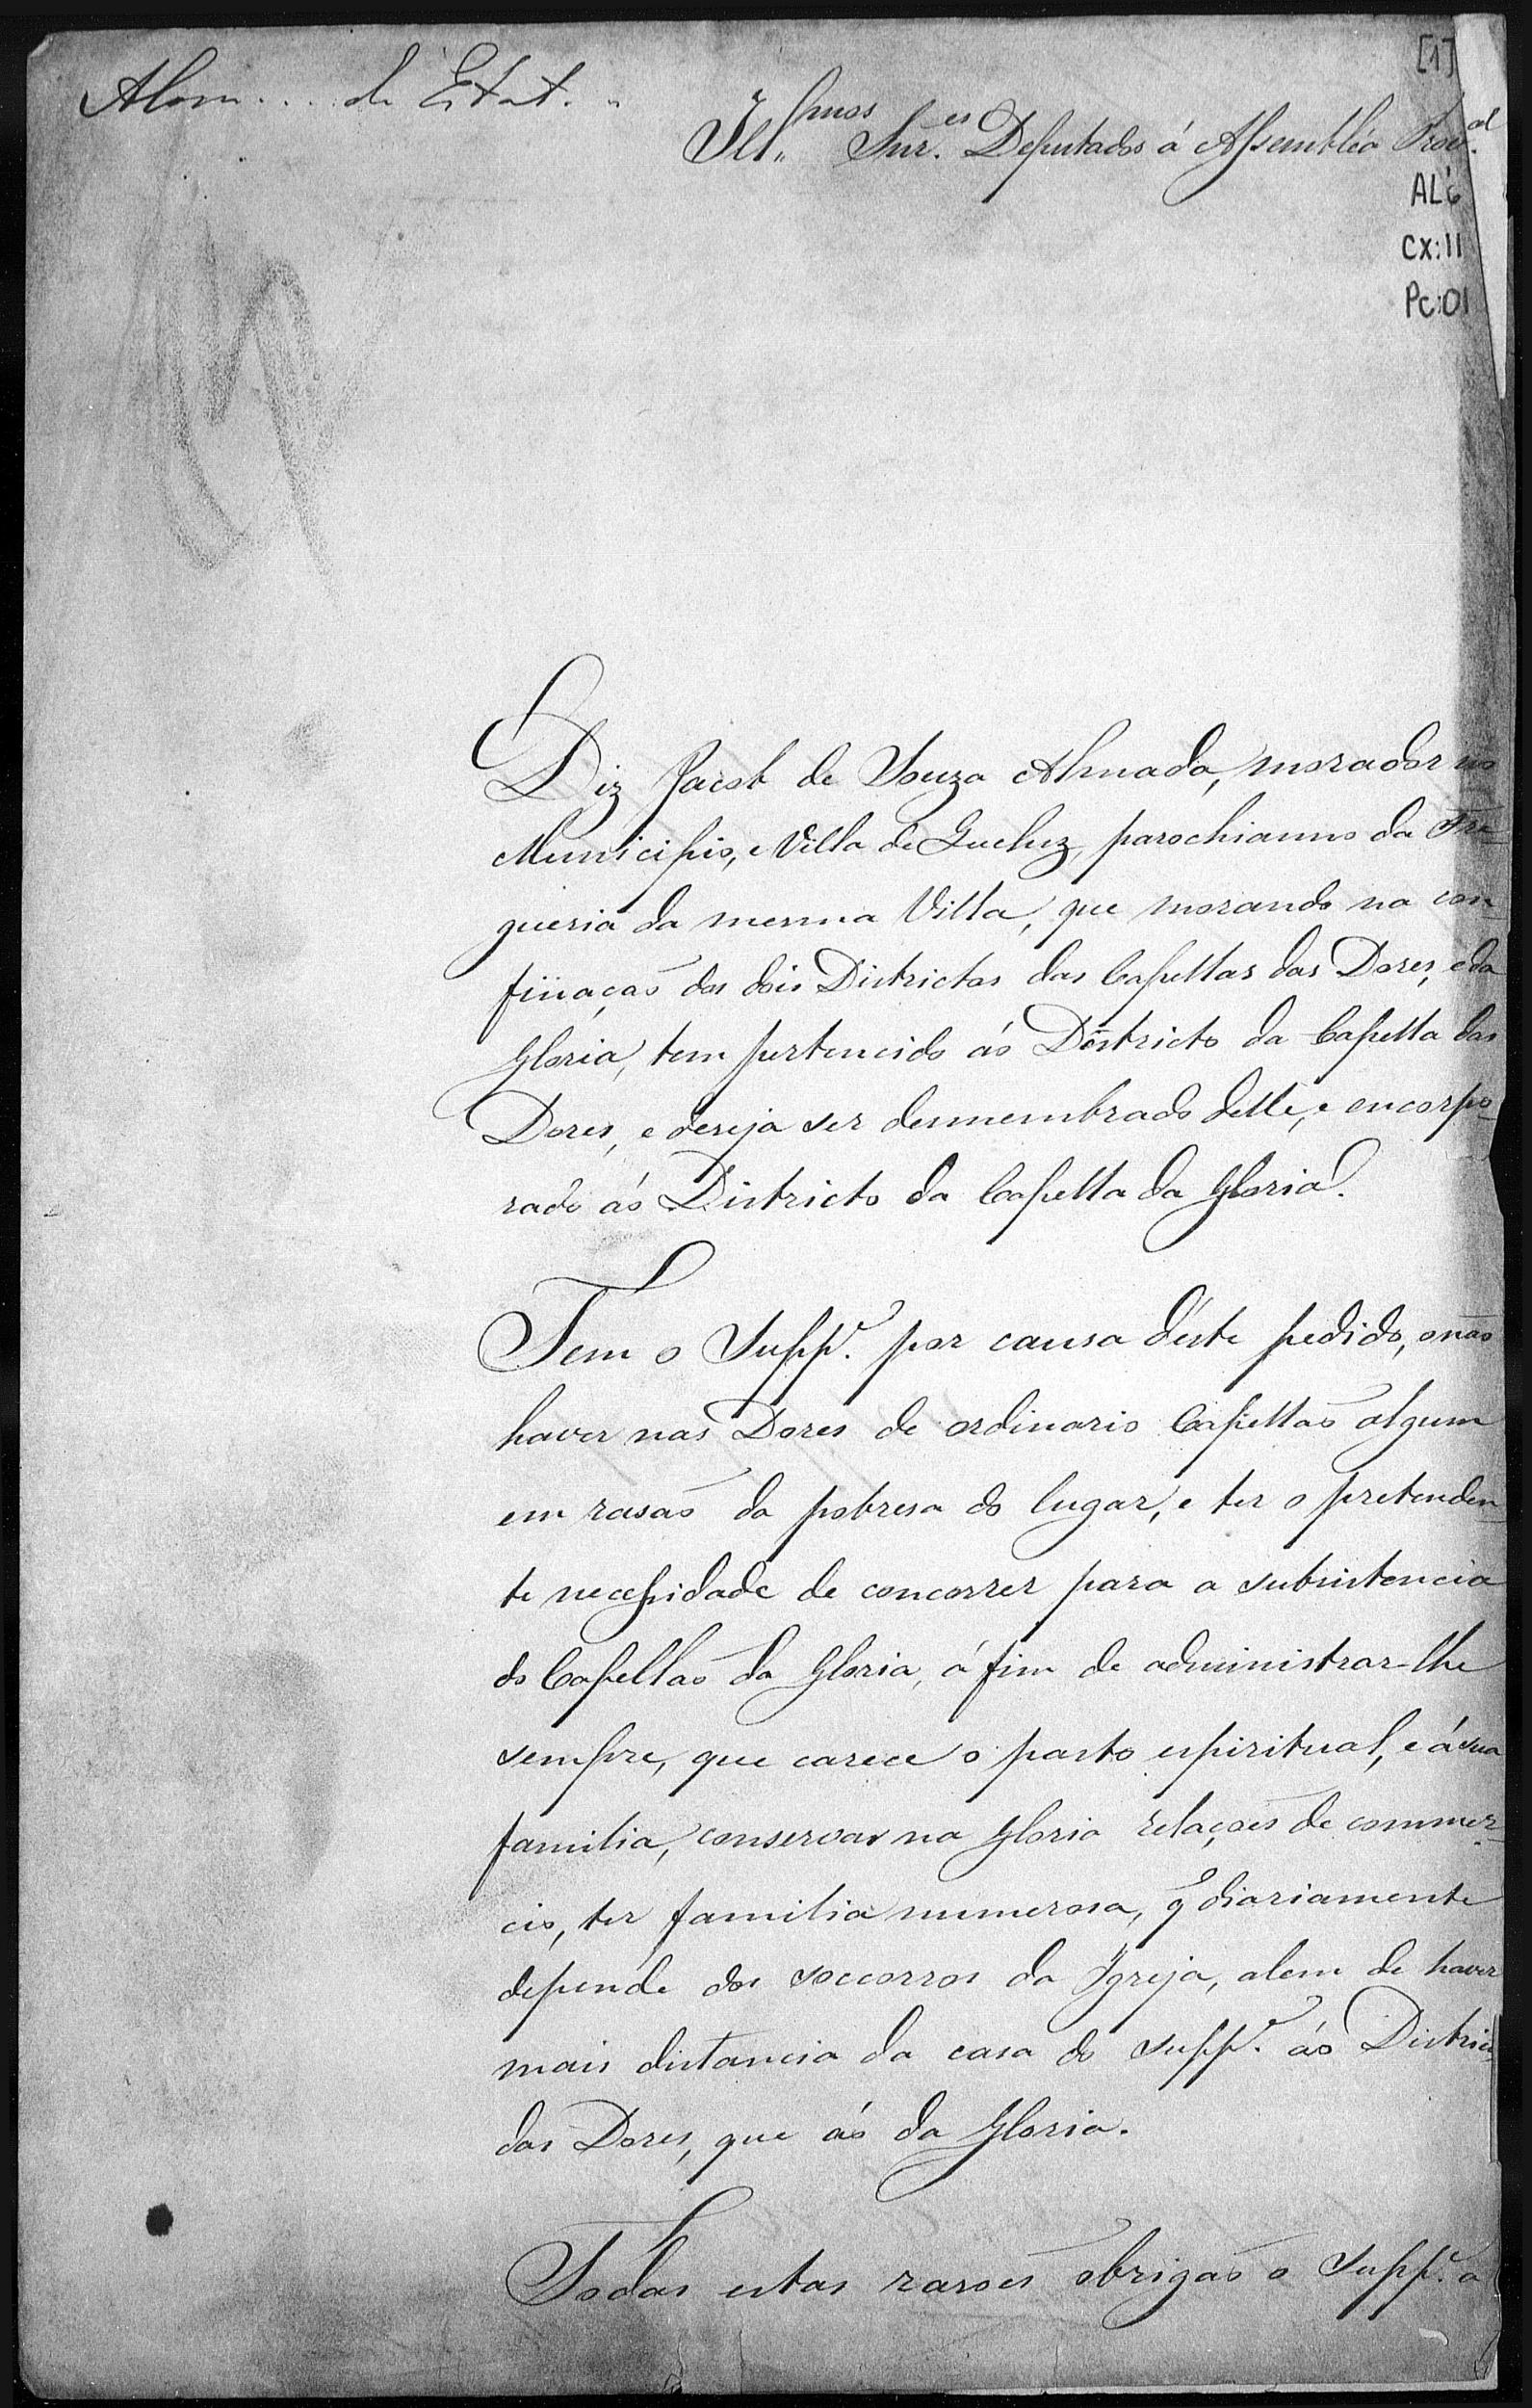 [1]
de Estat.
Ill.mos Snr.es Deputados á Assembléa Prov.al
AL6
CX:11
Pc:01
Diz Jacob de Souza Almada, morador no
Municipio, e Villa de Queluz, parochianno da Fre-
gueria da mesma Villa, que morando na con-
finação dos dois Districtos das Capellas das Dores, e da
Gloria, tem pertencido áo Districto da Capella das
Dores, e deseja ser desmembrado delle, e encorpo-
rado áo Districto da Capella da Gloria.
Tem o Supp.e por causa d'este pedido, o não
haver nas Dores de ordinario Capellão algum
em rasão da pobresa do lugar, e ter o pretenden-
te necessidade de concorrer para a subsistencia
do Capellão da Gloria, á fim de administrar-lhe
sempre, que carece o pasto espiritual, e á sua
familia, conservar na Gloria relações de commer-
cio, ter familia numerosa, q̃ diariamente
depende dos soccorros da Igreja, alem de haver
mais distancia da casa do Supp.e áo Districto
das Dores, que áo da Gloria.
Todas estas rasoẽs obrigão o Supp.e a